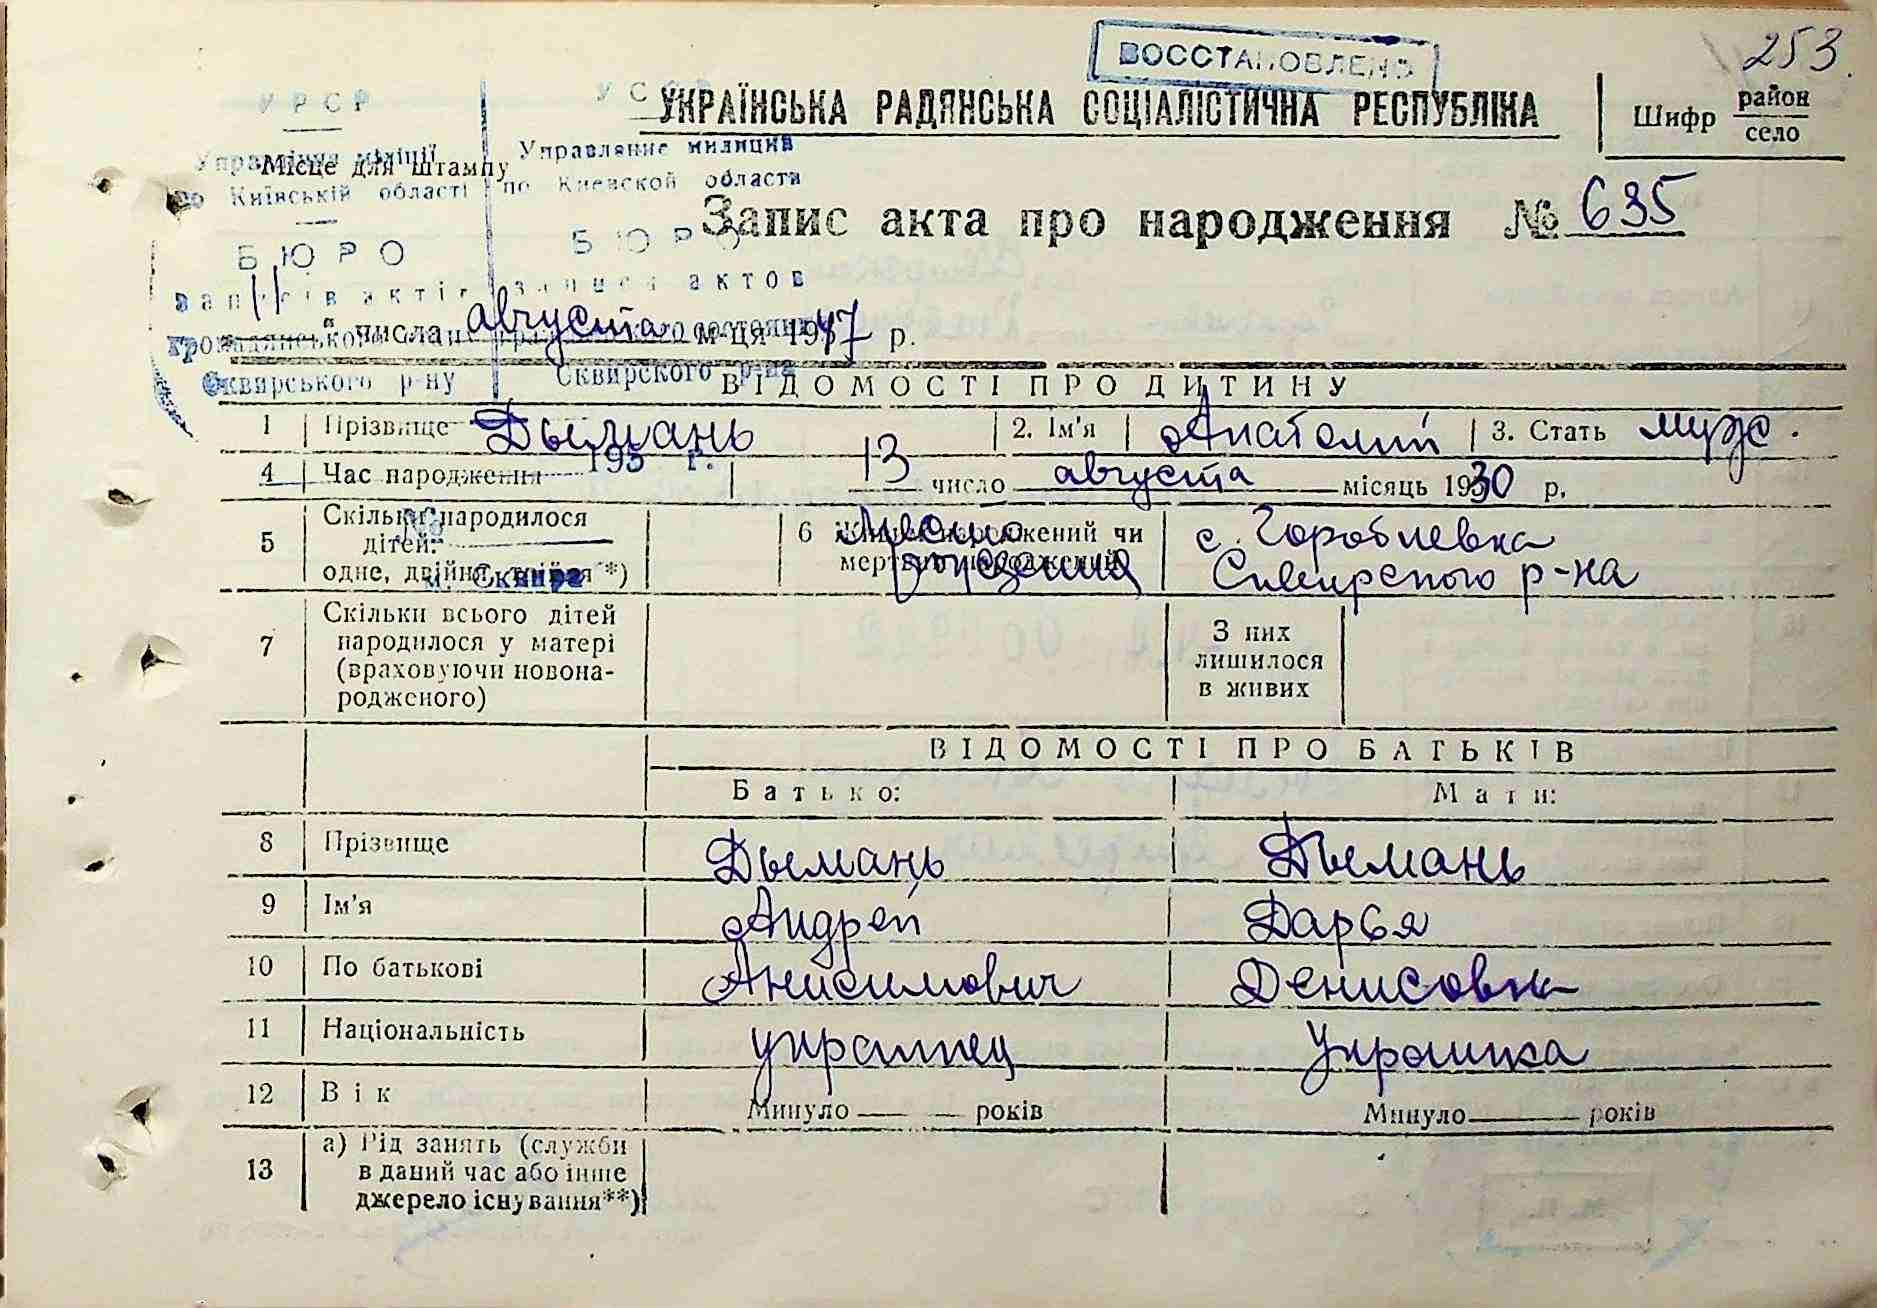 ВОССТАНОВЛЕНО
253.
УКРАЇНСЬКА РАДЯНСЬКА СОЦІАЛІСТИЧНА РЕСПУБЛІКА
Шифр район
село
УРСР
Управління міліції Управление милиции
Місце для штампу
по Київській області по Киевской области
Запис акта про народження № 635
БЮРО БЮРО
записів актів записи актов
11 числа августа м-ця 1947 р.
Сквирського р-ну Сквирского р-на
ВІДОМОСТІ ПРО ДИТИНУ
1 Прізвище Дымань 2. Ім'я Анатолий 3. Стать муж.
195 г.
4 Час народження 13 число августа місяць 1930 р.
5 Скільки народилося
дітей:
одне, двійня, трійня*)
м. Сквира
6 Живонароджений чи
мертвонароджений
Место
рождения
с. Горобиевка
Сквирского р-на
7 Скільки всього дітей
народилося у матері
(враховуючи новона-
родженого)
З них
лишилося
в живих
ВІДОМОСТІ ПРО БАТЬКІВ
Батько: Мати:
8 Прізвище Дымань Дымань
9 Ім'я Андрей Дарья
10 По батькові Анисимович Денисовна
11 Національність украинец Украинка
12 Вік Минуло — — років Минуло — років
13 а) Рід занять (служби
в даний час або інше
джерело існування**)